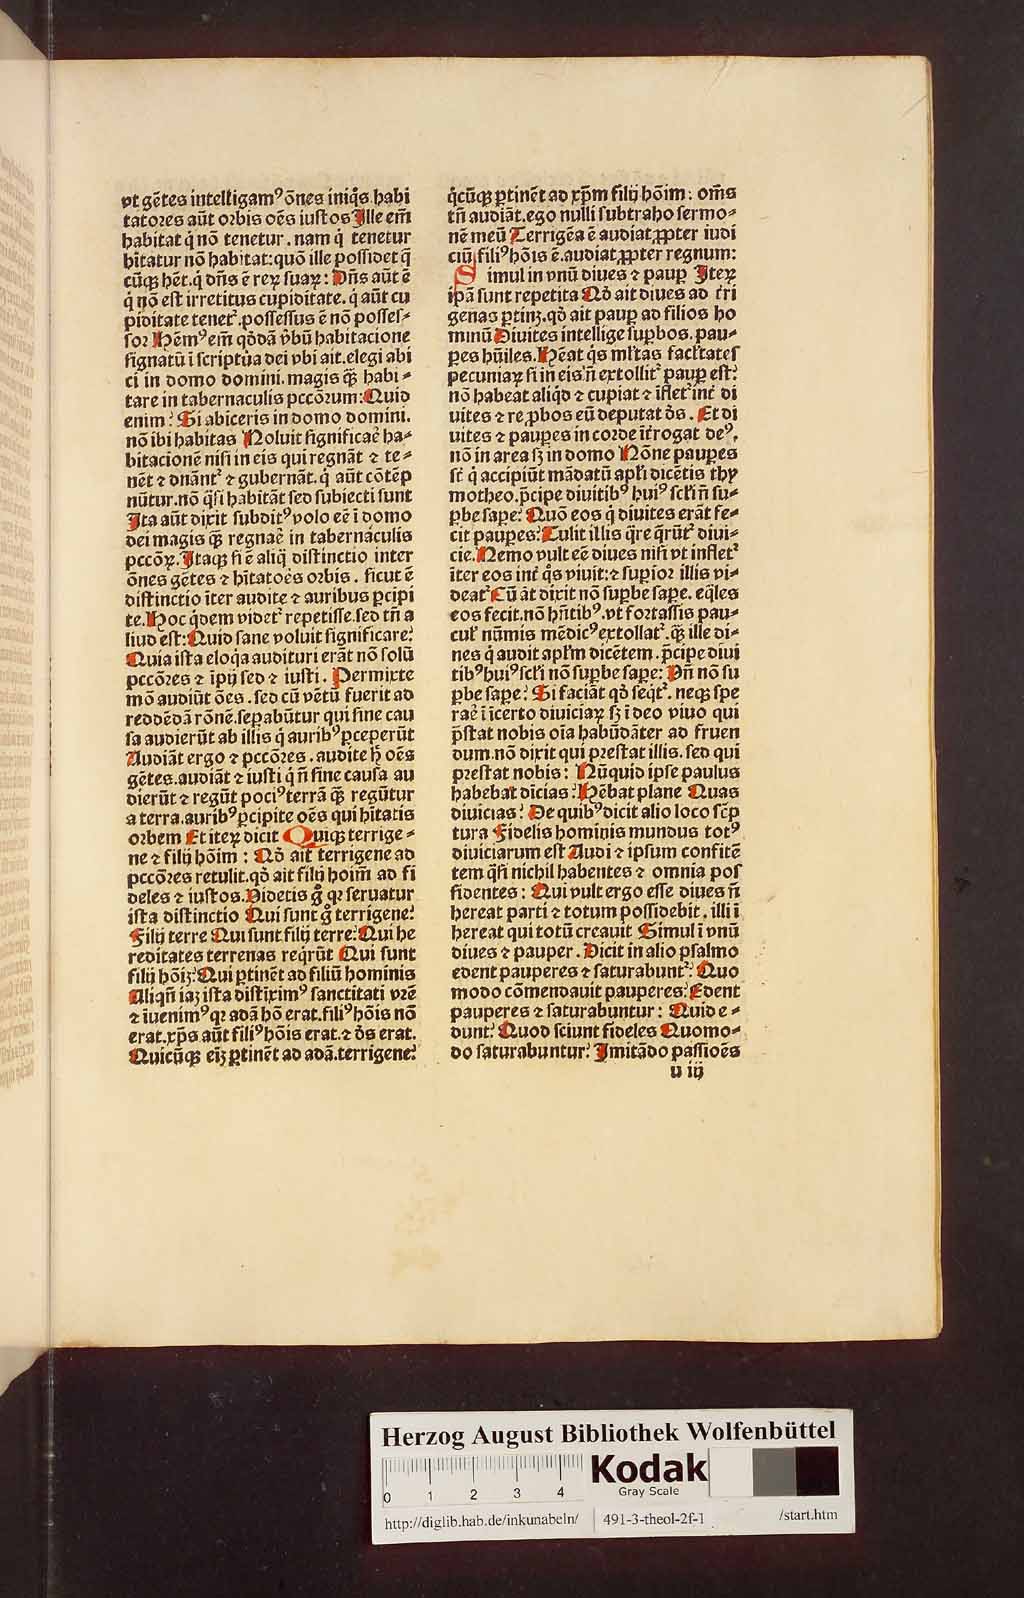 vt gētes intelligamꝰ ōnes iniq̊s habi
tatores aūt orbis oēs iustos Ille em̄
habitat q̇ nō tenetur . nam q̇ tenetur
hītatur nō habitat: quō ille possidet q̄
cūqꝫ hēt. q̇ dn̄s ē reꝝ suaꝝ: Dn̄s aūt ē
q̇ nō est irretitus cupiditate. q̇ aūt cu
piditate tenet᷑. possessus ē nō posses⸗
sor Hēmꝰ em̄ qōdā v̄bū habitacione
signatū ī script̉a dei vbi ait. elegi abi
ci in domo domini. magis qꝫ̄ habi⸗
tare in tabernaculis pccōrum: Quid
enim? Si abiceris in domo domini.
nō ibi habitas Noluit significar̄e ha⸗
bitacionē nisi in eis qui regnāt ⁊ te⸗
nēt ⁊ dn̄ant᷑ ⁊ gubernāt. q̇ aūt cōtēp
nūtur. nō q̄si habitāt sed subiecti sunt
Ita aūt dixit subditꝰ volo eē ī domo
dei magis qꝫ̄ regnar̄e in tabernaculis
pccōꝝ. Itaqꝫ si ē aliq̄ distinctio inter
ōnes gētes ⁊ hītatoēs orbis . sicut ē
distinctio īter audite ⁊ auribus ꝑcipi
te. Hoc q̇dem videt᷑ repetisse. sed tn̄ a
liud est: Quid sane voluit significare?
Quia ista eloq̄a audituri erāt nō solū
pccōres ⁊ īpij sed ⁊ iusti . Permixte
mō audiūt ōes . sed cū vētū fuerit ad
reddēdā rōnē. sepabūtur qui sine cau
sa audierūt ab illis q̇ auribꝰ ꝑceperūt
Audiāt ergo ⁊ pccōres . audite h̄ oēs
gētes. audiāt ⁊ iusti q̇ n̄ sine causa au
dierūt ⁊ regūt pociꝰ terrā qꝫ̄ regūtur
a terra. auribꝰ ꝑcipite oēs qui hītatis
orbem Et iteꝝ dicit Quiqꝫ terrige⸗
ne ⁊ filij hōim : Qō ait terrigene ad
pccōres retulit. qō ait filij hoim̄ ad fi
deles ⁊ iustos. Videtis g̊ qꝛ seruatur
ista distinctio Qui sunt g̊ terrigene?
Filij terre Qui sunt filij terre? Qui he
reditates terrenas reqrūt Qui sunt
filij hōiꝫ? Qui ꝑtinēt ad filiū hominis
Aliqn̄ iaꝫ ista distīximꝰ sanctitati vr̄e
⁊ īuenimꝰ qꝛ adā hō erat. filiꝰ hōis nō
erat. xp̄s aūt filiꝰ hōis erat. ⁊ dꝰs erat.
Quicūqꝫ eiꝫ ꝑtinēt ad adā. terrigene?
q̇cūqꝫ ꝑtinēt ad xp̄m filij hōim : om̄s
tn̄ audiāt. ego nulli subtraho sermo⸗
nē meū Terrigēa ē audiat ꝓpter iudi
ciū, filiꝰ hōis ē. audiat ꝓpter regnum:
Simul in vnū diues ⁊ paup Iteꝝ
ipā sunt repetita Qō ait diues ad tr̄i
genas ꝑtinꝫ. qō ait paup ad filios ho
minū Diuites intellige supbos. pau⸗
pes hūiles. Hēat q̇s ml̄tas facl̄tates
pecuniaꝝ si in eis n̄ extollit᷑ paup est?
nō habeat aliqd ⁊ cupiat ⁊ īflet᷑ int̄ di
uites ⁊ reꝓbos eū deputat dꝰs . Et di
uites ⁊ paupes in corde īt̄rogat deꝰ.
nō in area sꝫ in domo Nōne paupes
st̄ q̇ accipiūt mādatū apl̄i dicētis thy
motheo. p̄cipe diuitibꝰ huiꝰ scl̄i n̄ su⸗
pbe sape? Quō eos q̇ diuites erāt fe⸗
cit paupes? Tulit illis q̄re q̄rūt᷑ diui⸗
cie. Nemo vult eē diues nisi vt inflet᷑
īter eos int̄ q̊s viuit: ⁊ supior illis vi⸗
deat᷑ Cū āt dixit nō supbe sape. eq̄les
eos fecit. nō hn̄tibꝰ. vt fortassis pau⸗
cul̄ nūmis mēdicꝰ extollat᷑. qꝫ̄ ille di⸗
nes q̇ audit apl̄m dicētem. p̄cipe diui
tibꝰ huiꝰ scl̄i nō supbe sape: Vn̄ nō su
pbe sape? Si faciāt qō seq̇t᷑. neqꝫ spe
rar̄e ī īcerto diuiciaꝝ sꝫ ī deo viuo qui
p̄stat nobis oīa habūdāter ad fruen
dum. nō dixit qui prestat illis. sed qui
prestat nobis : Nūquid ipse paulus
habebat dīcias? Hēbat plane Quas
diuicias? De quibꝰ dicit alio loco sc̄p
tura Fidelis hominis mundus totꝰ
diuiciarum est Audi ⁊ ipsum confitē
tem q̄si nichil habentes ⁊ omnia pos
sidentes : Qui vult ergo esse diues n̄
hereat parti ⁊ totum possidebit . illi ī
hereat qui totū creauit Simul ī vnū
diues ⁊ pauper . Dicit in alio psalmo
edent pauperes ⁊ saturabunt᷑: Quo
modo cōmendauit pauperes? Edent
pauperes ⁊ saturabuntur : Quid e⸗
dunt? Quod sciunt fideles Quomo⸗
do saturabuntur? Imitādo passioēs
u iij
Herzog August Bibliothek Wolfenbüttel
Kodak
Gray Scale
0 1 2 3 4
http://diglib.hab.de/inkunabeln/ 491-3-theol-2f-1 /start.htm